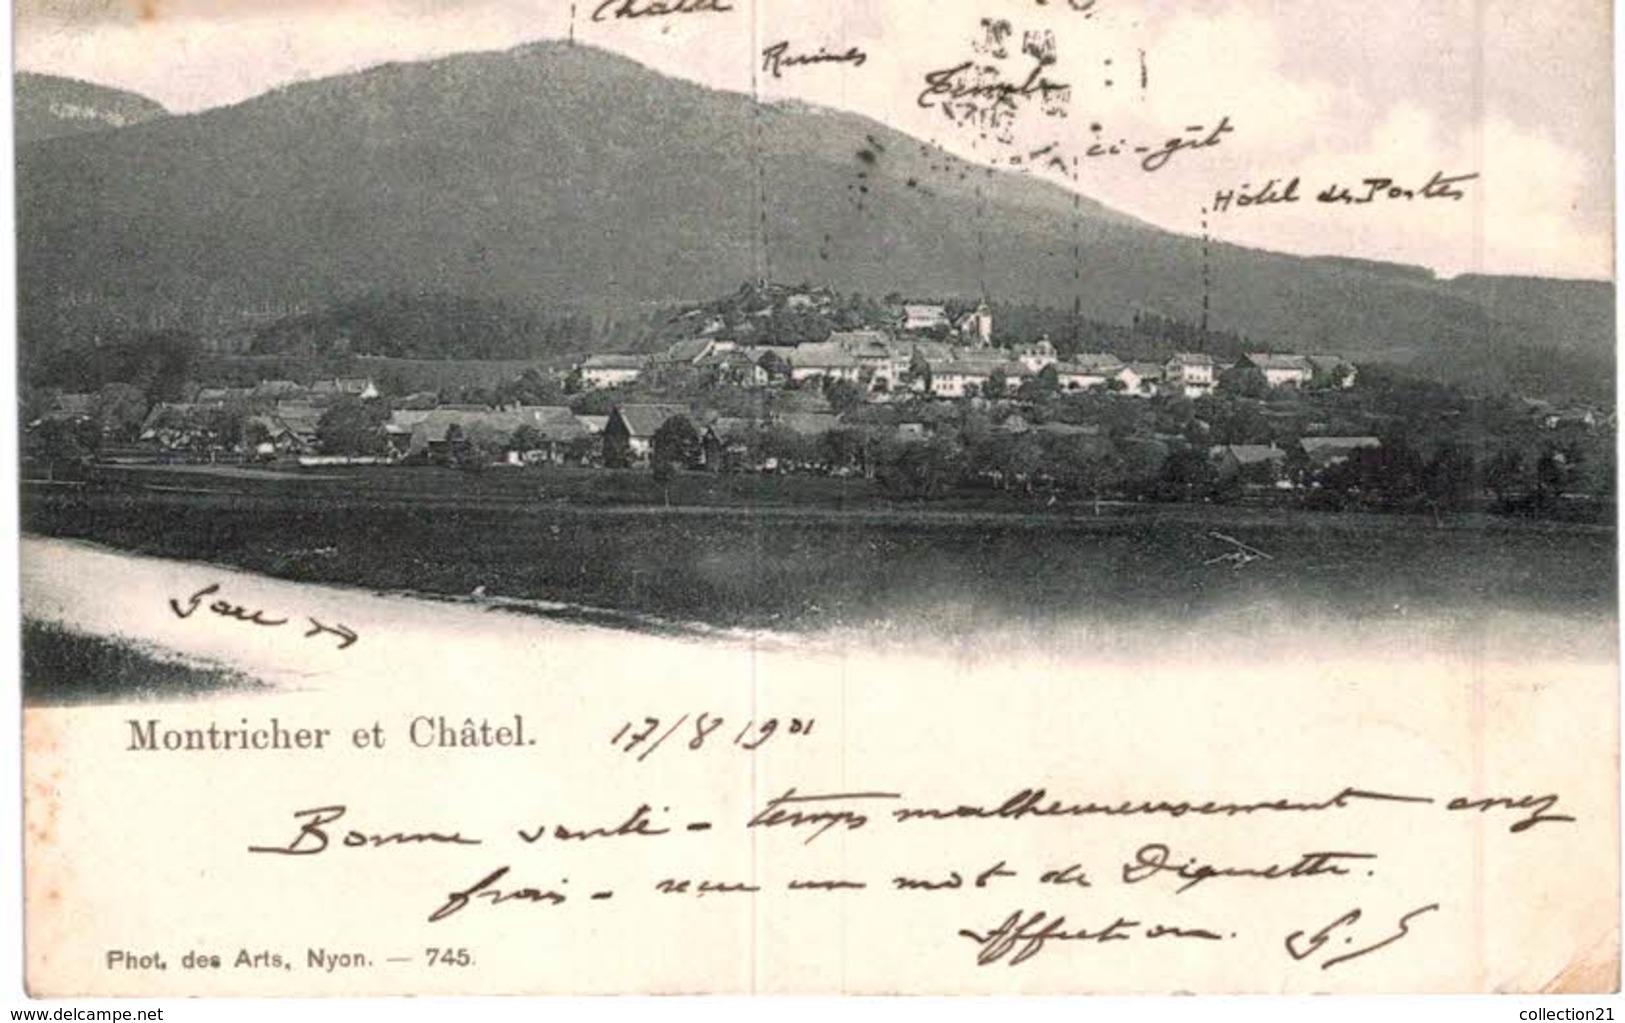 Châtel
Ruines
Temple
ci-gît
Hôtel des Postes
Gare
Montricher et Châtel.
17/8 1901
Bonne santé - temps malheureusement assez
frais - reçu un mot de Diquette.
Affection. G. S
Phot. des Arts, Nyon. — 745.
www.delcampe.net
collection21